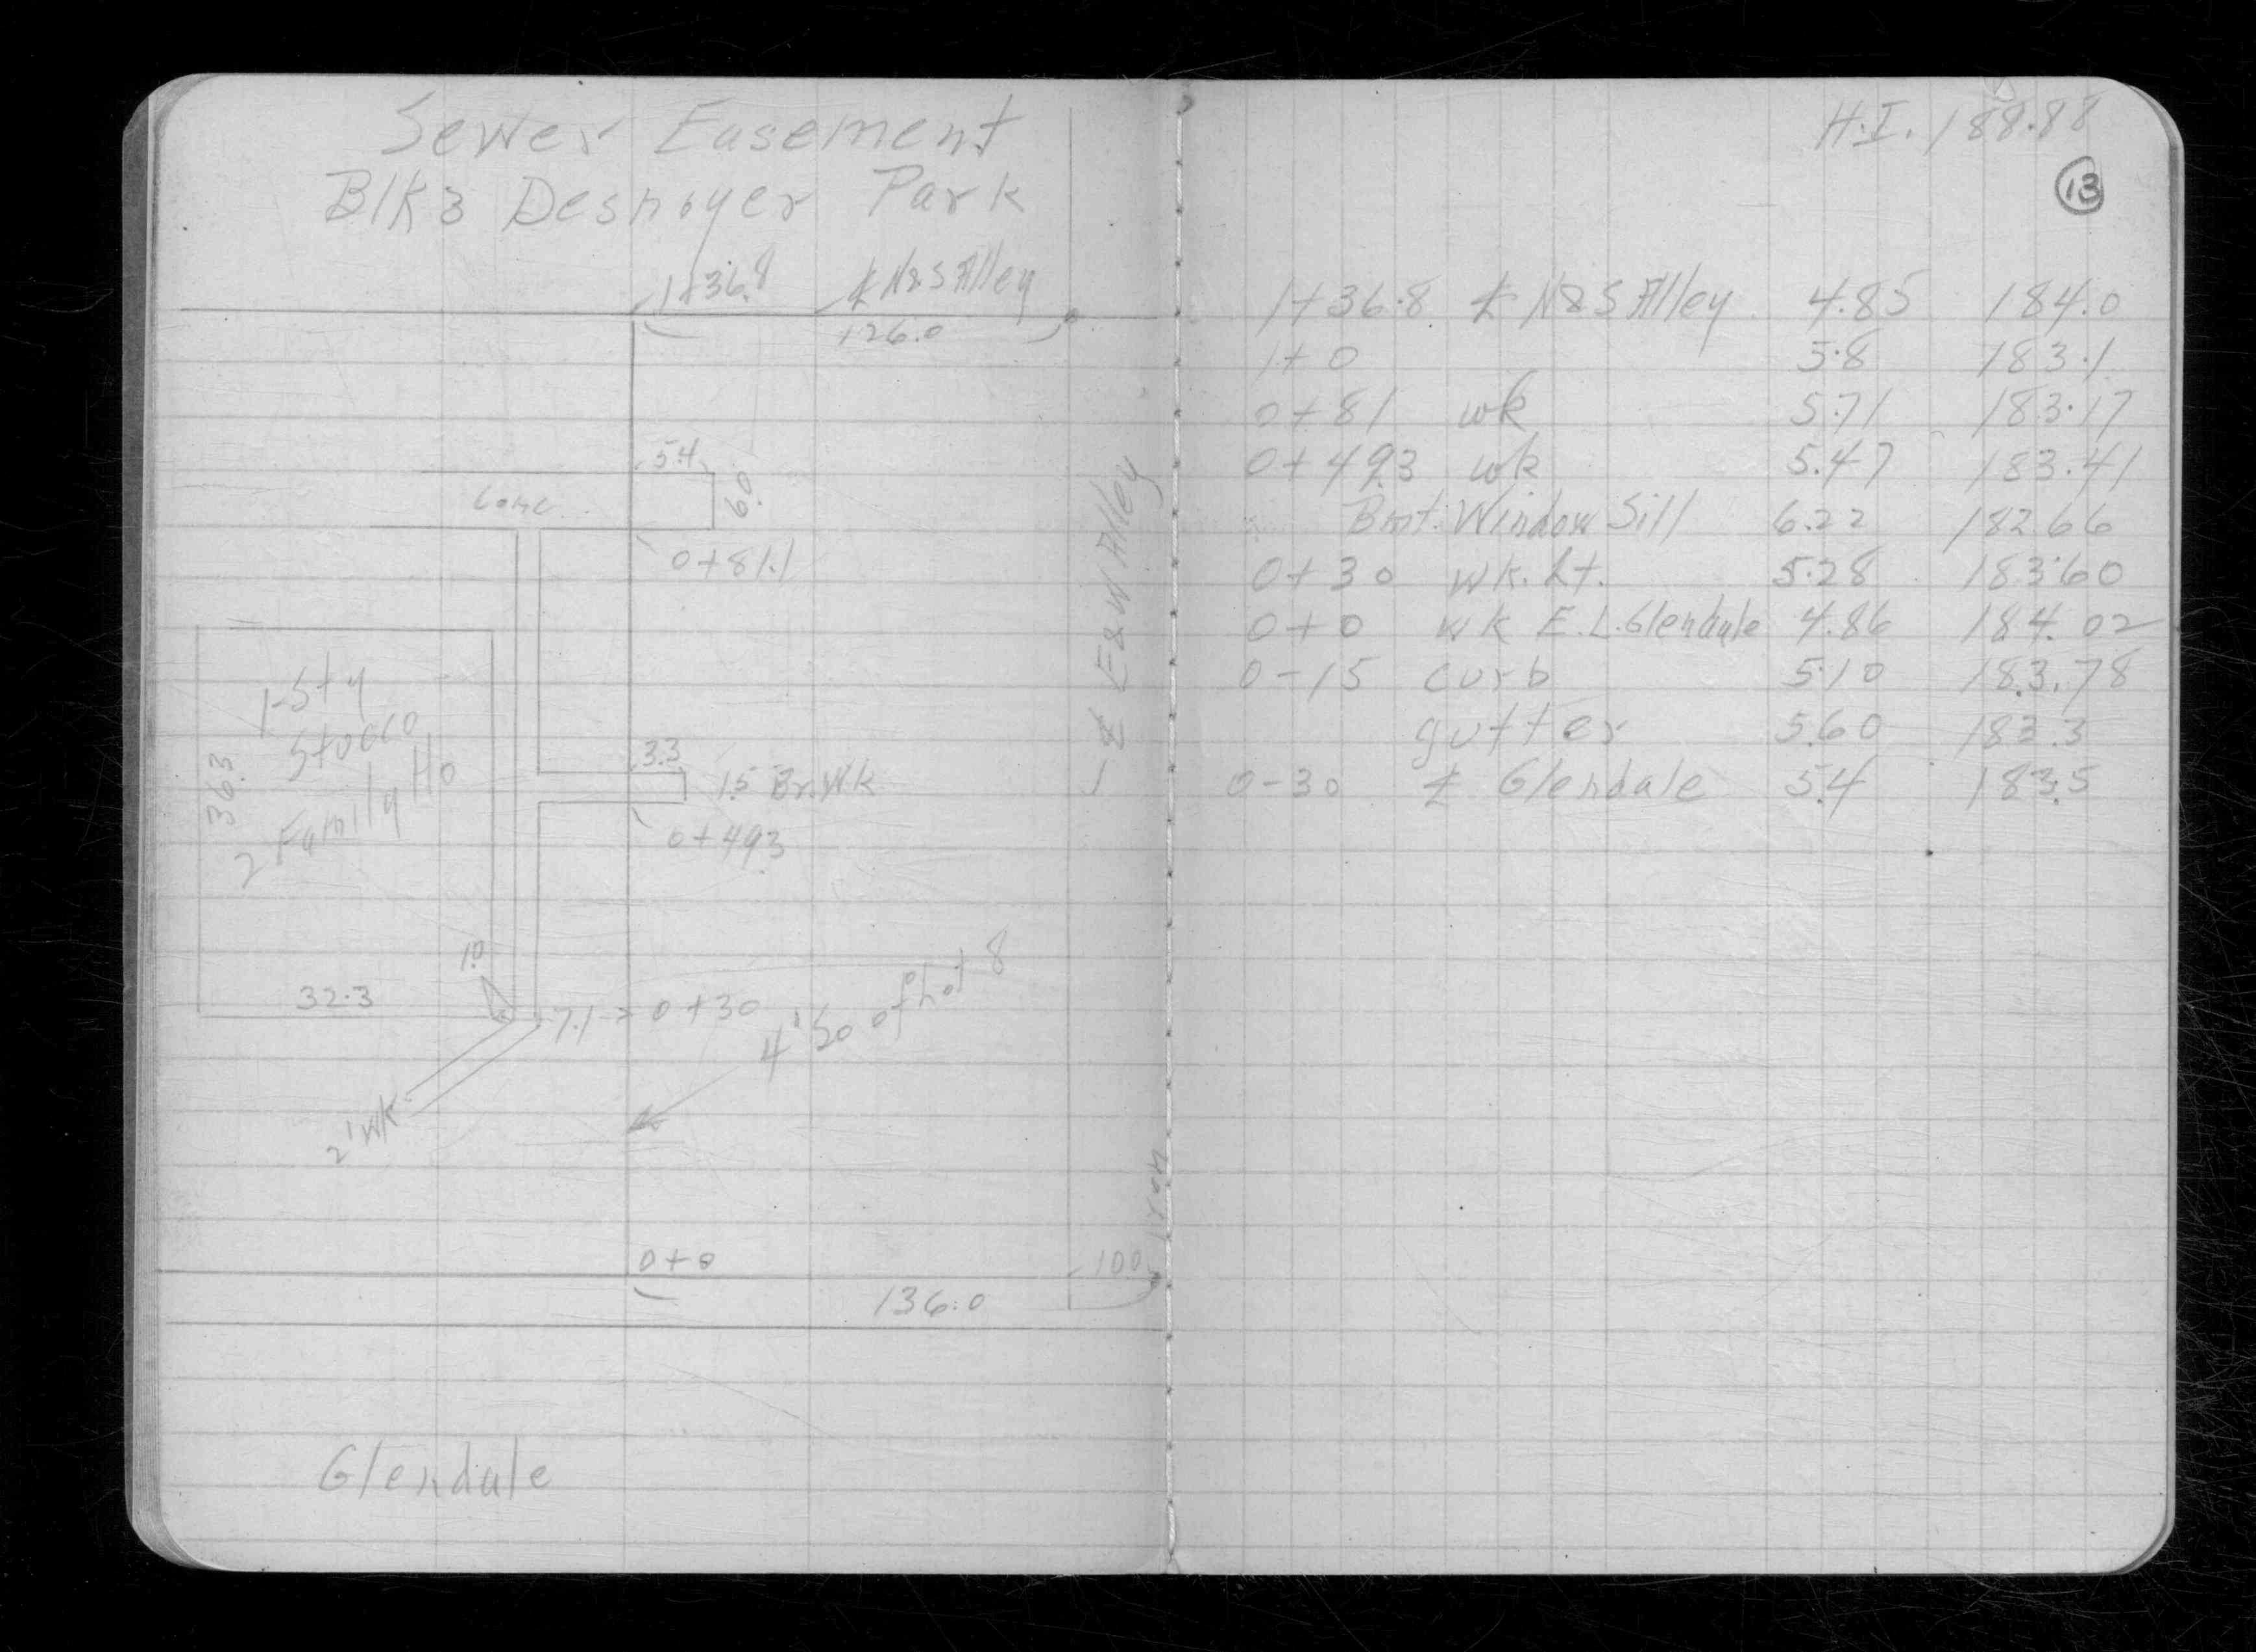 Sewer Easement
Blk 3 Desnoyer Park
1+36.8 ℄ N&S Alley
126.0
5.4
6.0
Conc.
0+81.1
℄ E&W Alley
1-Sty
Stucco
2 Family Ho
36.3
3.3
1.5 Br. Wk
0+49.3
1.0
32.3
7.1 = 0+30
4' So of Lot 8
2' Wk
0+0
10.0
136.0
Glendale
H.I. 188.88
13
1+36.8 ℄ N&S Alley 4.85 184.0
1+0 5.8 183.1
0+81 wk 5.71 183.17
0+49.3 wk 5.47 183.41
Bmt. Window Sill 6.22 182.66
0+30 wk. Lt. 5.28 183.60
0+0 wk E.L. Glendale 4.86 184.02
0-15 curb 5.10 183.78
gutter 5.60 183.3
0-30 ℄ Glendale 5.4 183.5